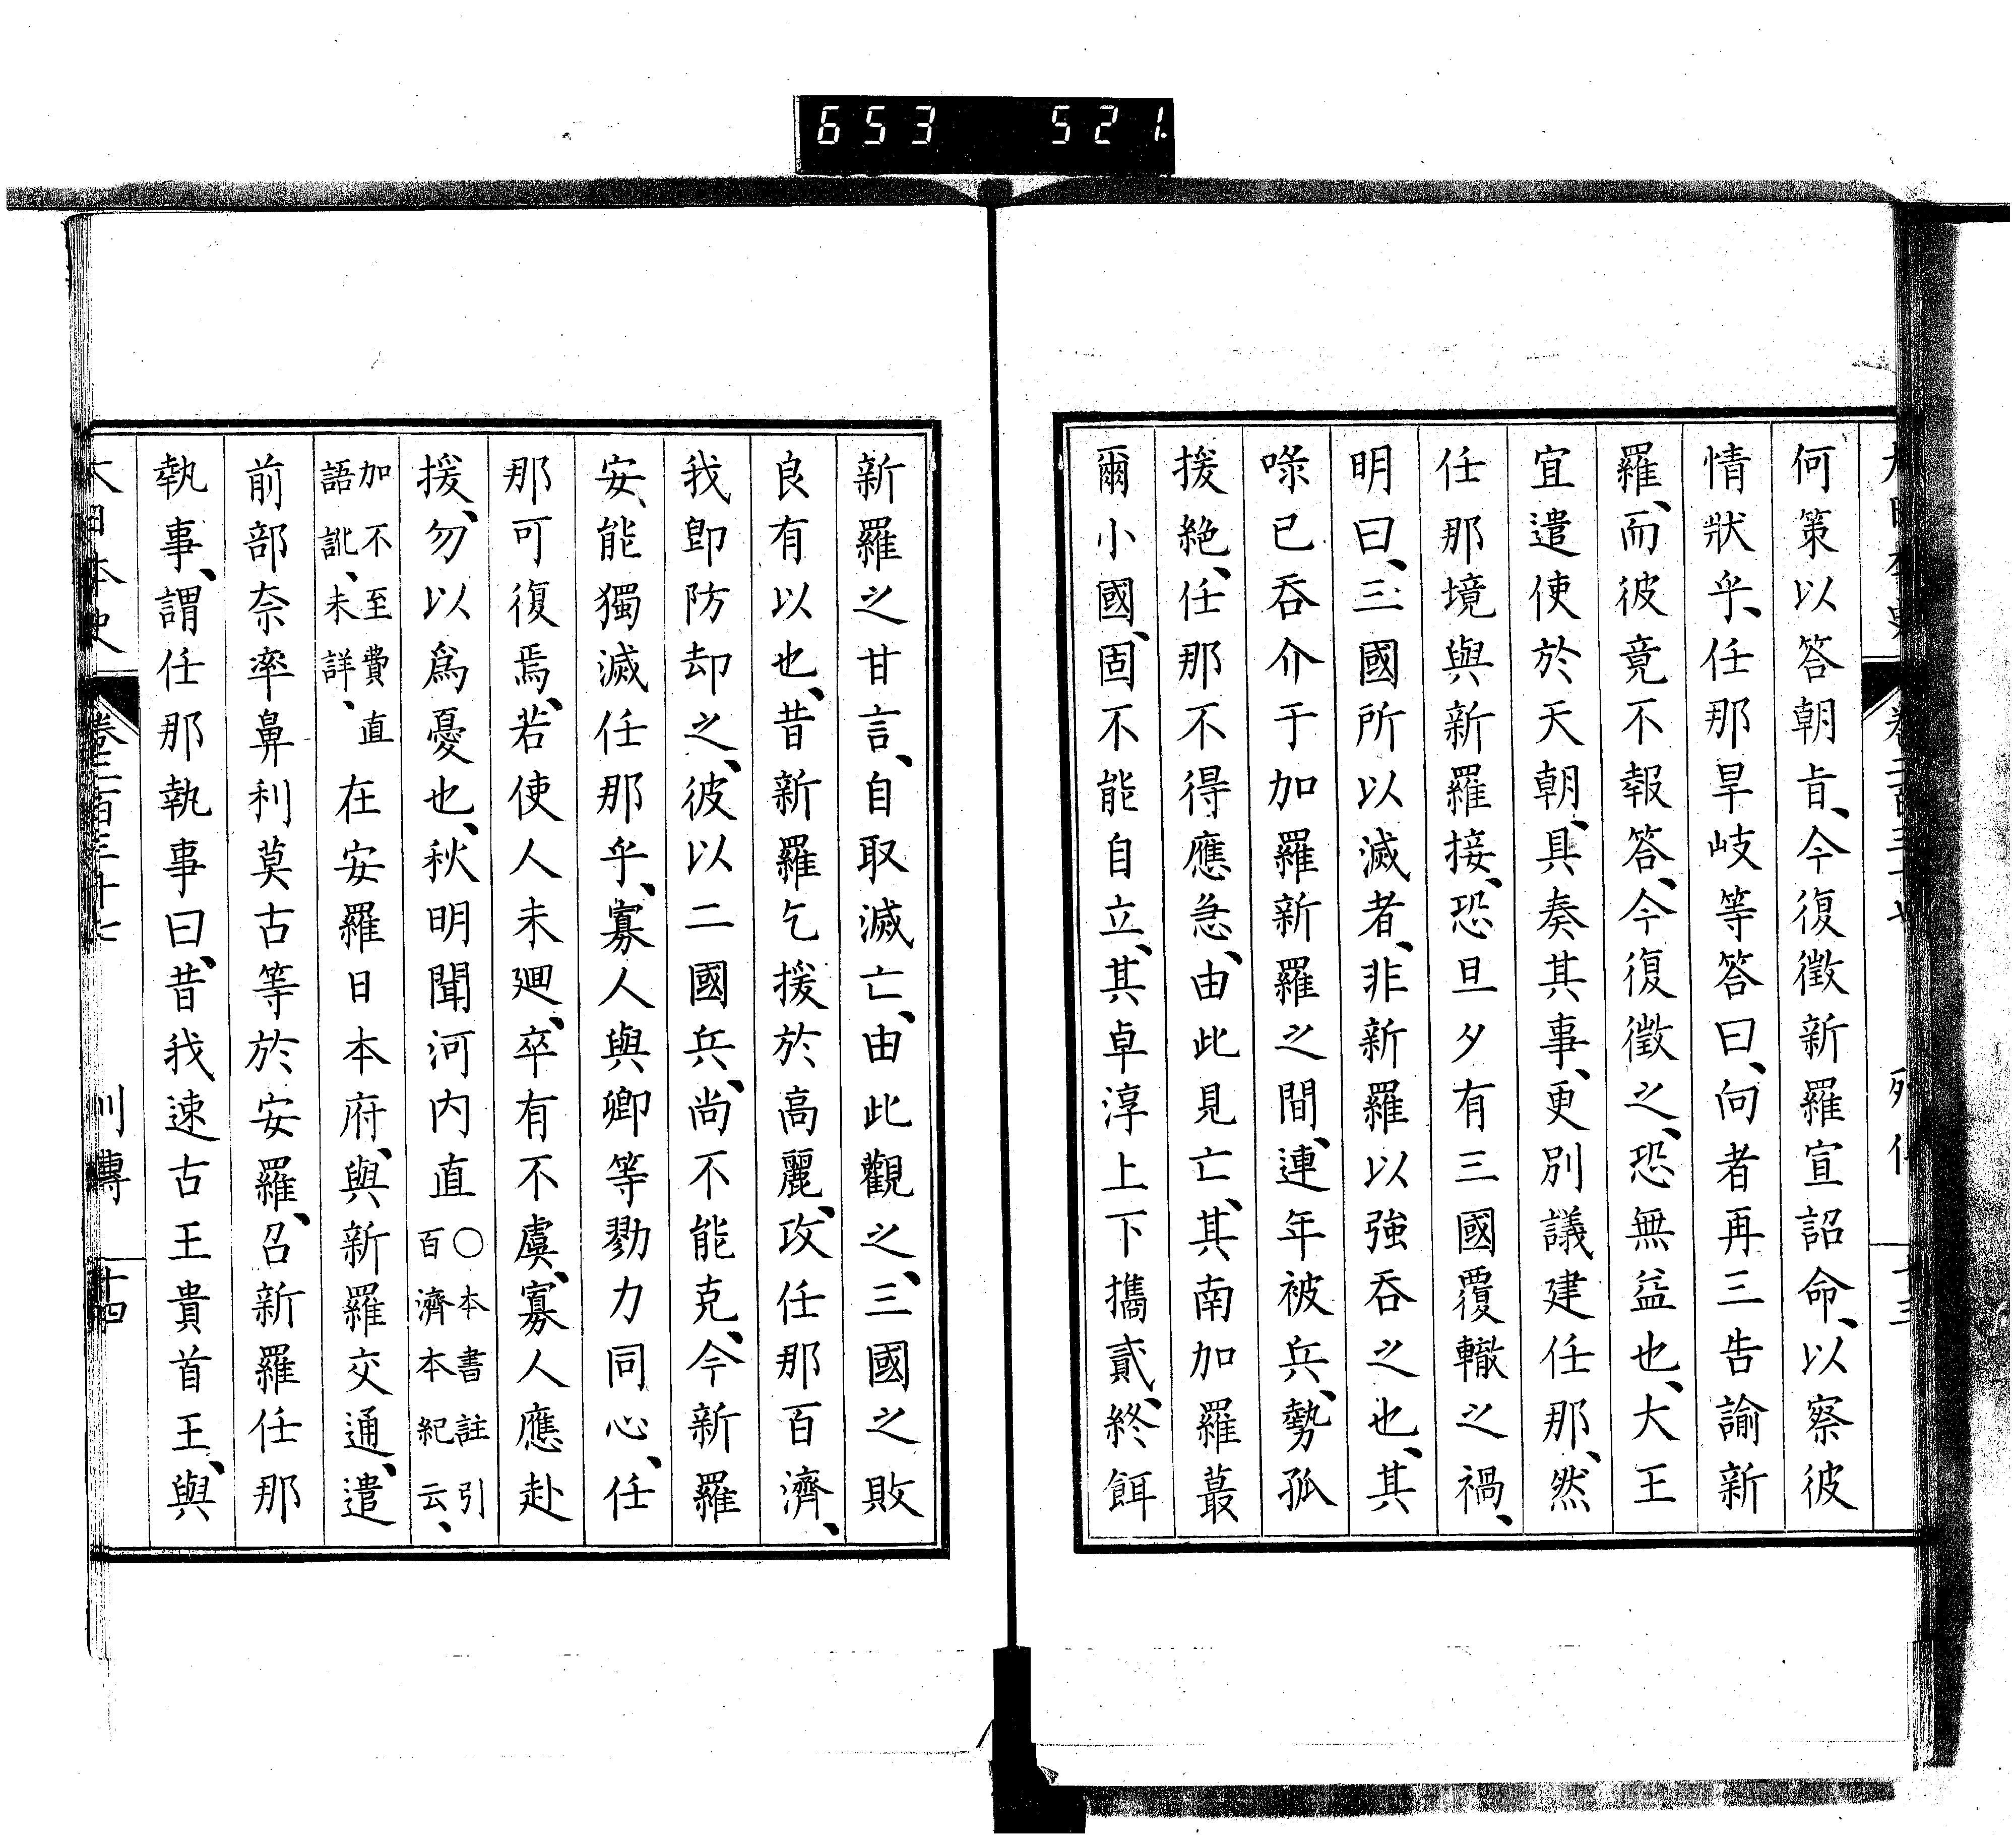 653 521.
何策以答朝旨、今復徵新羅宣詔命、以察彼
情狀乎、任那旱岐等答曰、向者再三告諭新
羅、而彼竟不報答、今復徵之、恐無益也、大王
宜遣使於天朝、具奏其事、更別議建任那、然
任那境與新羅接、恐旦夕有三國覆轍之禍、
明曰、三國所以滅者、非新羅以強吞之也、其
㖨已吞介于加羅新羅之間、連年被兵、勢孤
援絶、任那不得應急、由此見亡、其南加羅蕞
爾小國、固不能自立、其卓淳上下攜貳、終餌
新羅之甘言、自取滅亡、由此觀之、三國之敗
良有以也、昔新羅乞援於高麗、攻任那百濟、
我卽防却之、彼以二國兵、尚不能克、今新羅
安、能獨滅任那乎、寡人與卿等勠力同心、任
那可復焉、若使人未廻、卒有不虞、寡人應赴
援、勿以爲憂也、秋明聞河内直〇本書註引百濟本紀云、
加不至費直語訛、未詳、在安羅日本府、與新羅交通、遣
前部奈率鼻利莫古等於安羅、召新羅任那
執事、謂任那執事曰、昔我速古王貴首王、與
大日本史 卷二百三十七 列傳 十四